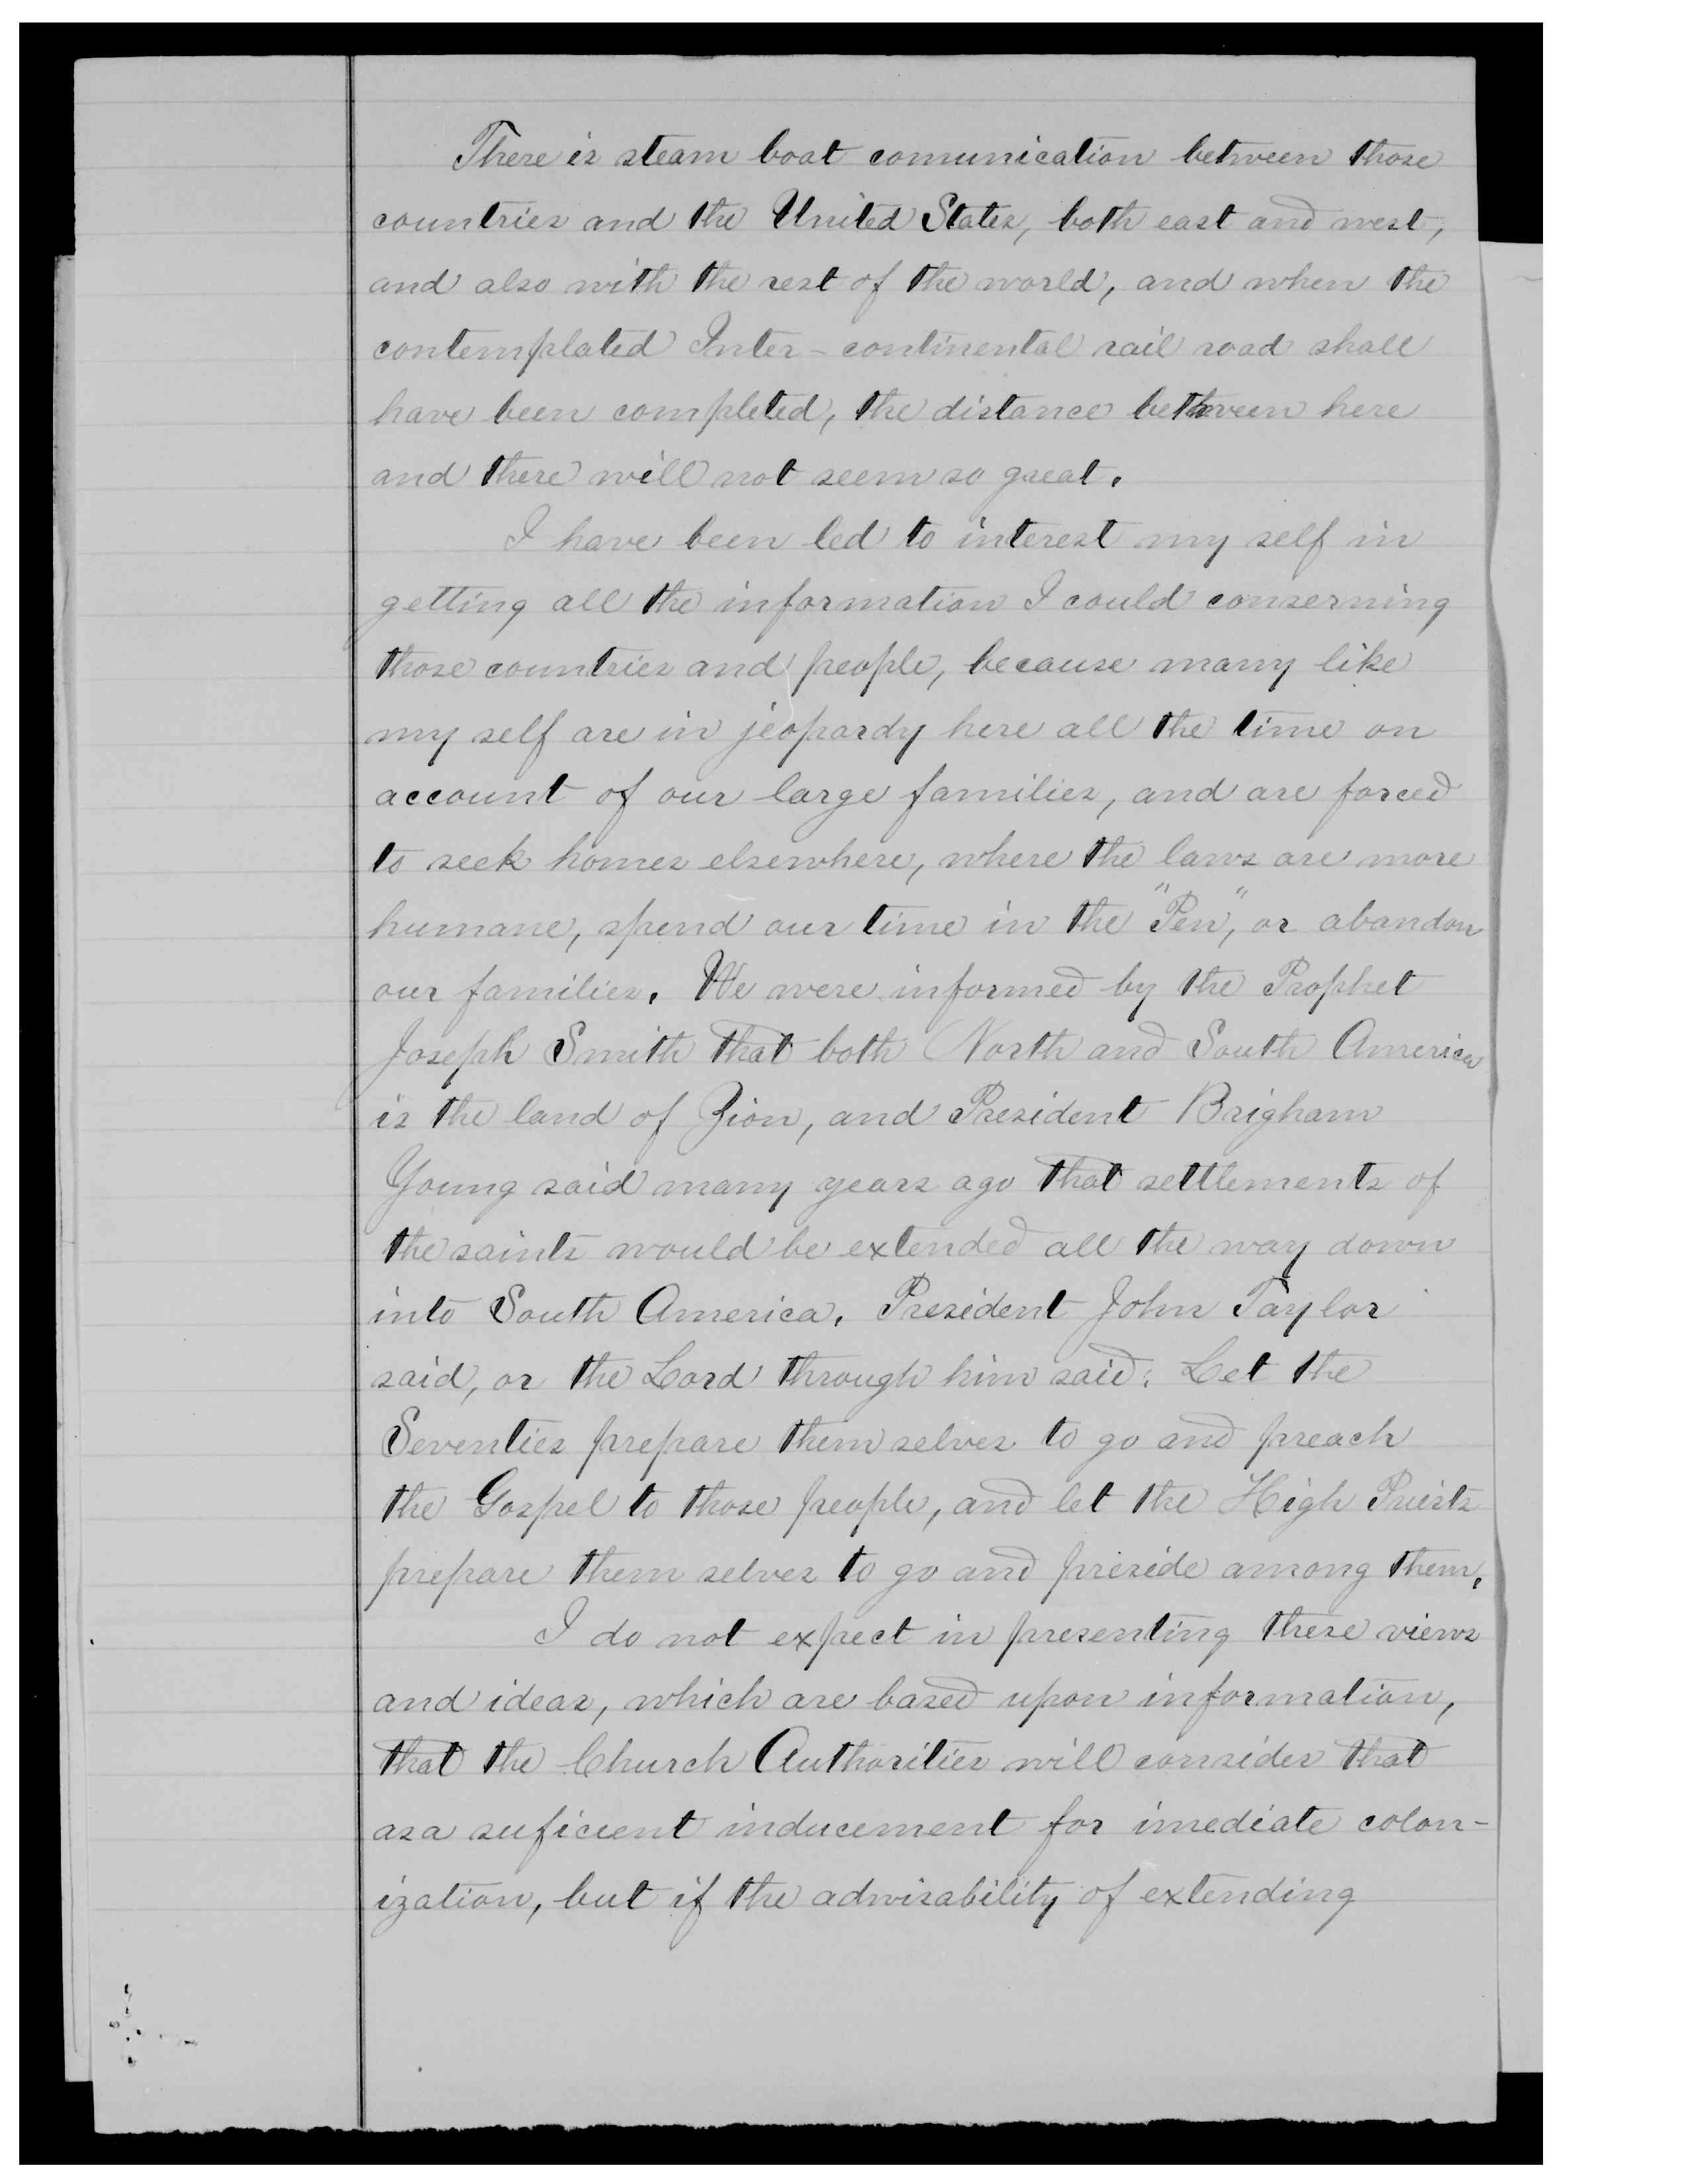 There is steam boat comunication between those
countries and the United States, both east and west,
and also with the rest of the world, and when the
contemplated Inter-continental rail road shall
have been completed, the distance between here
and there will not seem so great.
I have been led to interest my self in
getting all the information I could conserning
those countries and people, because many like
my self are in jeopardy here all the time on
account of our large families, and are forced
to seek homes elsewhere, where the laws are more
humane, spend our time in the "Pen", or abandon
our families. We were informed by the Prophet
Joseph Smith that both North and South America
is the land of Zion, and President Brigham
Young said many years ago that settlements of
the saints would be extended all the way down
into South America. President John Taylor
said, or the Lord through him said: Let the
Seventies prepare them selves to go and preach
the Gospel to those people, and let the High Priests
prepare them selves to go and preside among them.
I do not expect in presenting these views
and ideas, which are based upon information,
that the Church Authorities will consider that
as a suficient inducement for imediate colon-
ization, but if the advisability of extending